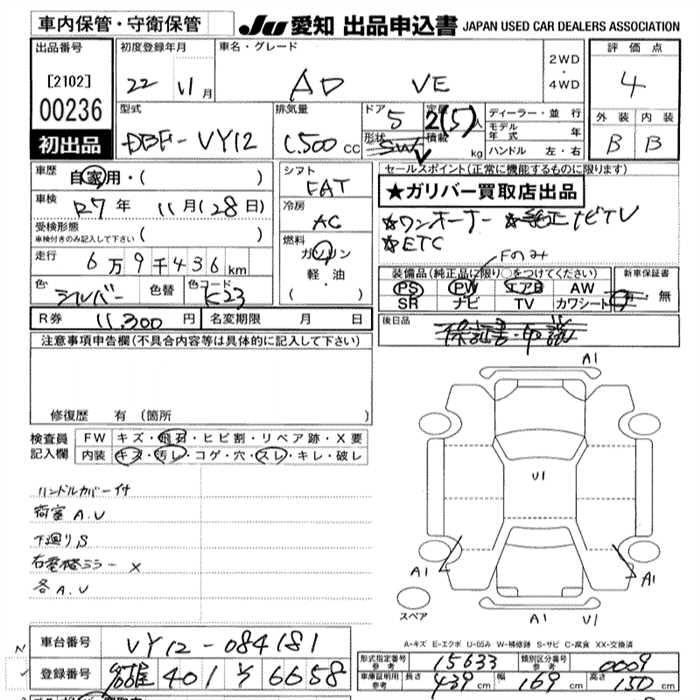 車内保管・守衛保管
JU 愛知 出品申込書 JAPAN USED CAR DEALERS ASSOCIATION
出品番号 初度登録年月 車名・グレード 評価点
[2102] 22 11月 AD VE 2WD・4WD 4
00236
初出品
型式 排気量 ドア 定員 ディーラー・並行 外装 内装
DBF-VY12 1,500cc 5 2(5)人 モデル年式 年 B B
形状 積載 kg ハンドル 左・右
車歴 自家用・( )
シフト FAT
セールスポイント(正常に機能するものに限ります)
★ガリバー買取店出品
車検 R7年 11月(28日)
冷房 AC
☆ワンオーナー ☆純正ナビTV
☆ETC
受検形態
車検付きのみ記入して下さい ( )
燃料 ガソリン 軽・油 ・( )
Fのみ
走行 6万9千436km
装備品(純正品に限り○をつけてください) 新車保証書
PS PW エアB AW 有・無
SR ナビ TV カワシート
色 シルバー 色替 色コード K23
R券 11,300円 名変期限 月 日
後日品 保証書・取説
注意事項申告欄(不具合内容等は具体的に記入して下さい)
修復歴 有(箇所
検査員記入欄
FW キズ・飛石・ヒビ割・リペア跡・X要
内装 キズ・汚レ・コゲ・穴・スレ・キレ・破レ
ハンドルカバー付
荷室A.U
下廻りS
右電格ミラーX
各A.U
A1
U1
A1
A1
A1 U1
スペア
A-キズ E-エクボ U-凹み W-補修跡 S-サビ C-腐食 XX-交換済
車台番号 VY12-084181
登録番号 401 6658
型式指定番号 参考 15633 類別区分番号 参考 0009
車庫証明用 参考 長さ 439cm 幅 169cm 高さ 150cm